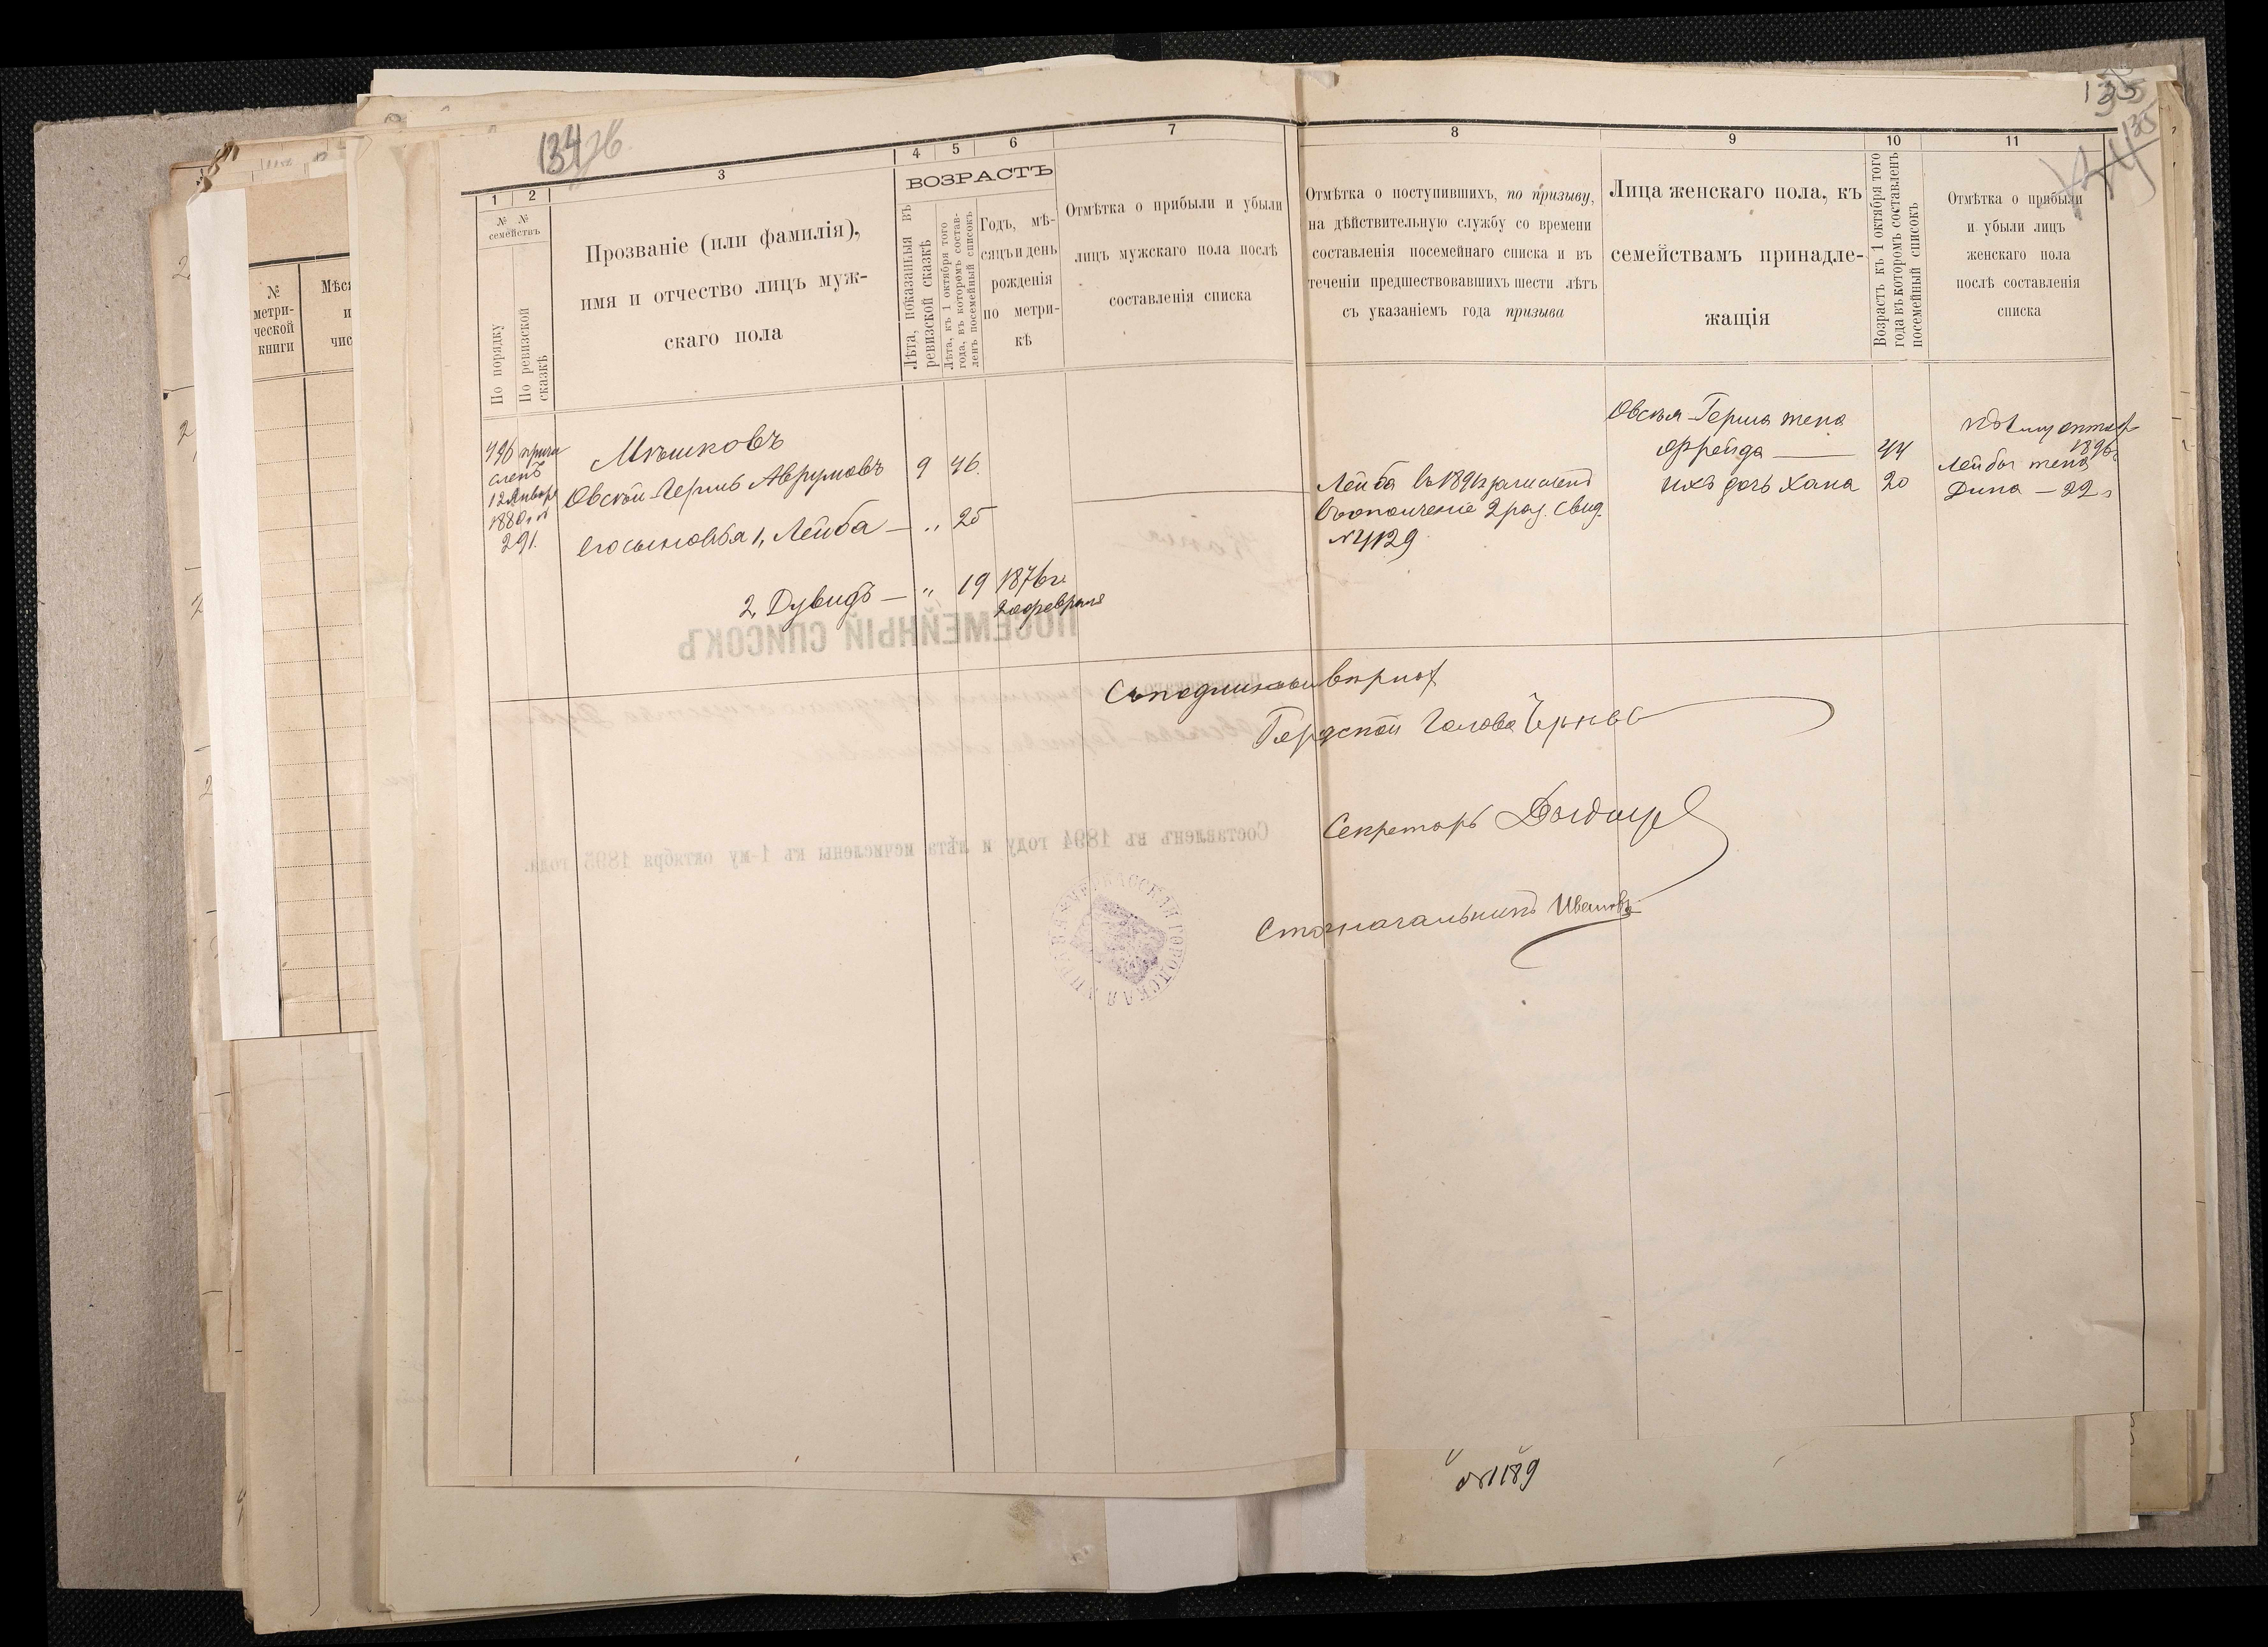 134
135
1 2 3 4 5 6 7
8 9 10 11
№ № семействъ
По порядку
По ревизской сказкѣ
Прозваніе (или фамилія),
имя и отчество лицъ муж-
скаго пола
ВОЗРАСТЪ
Лѣта, показанныя въ
ревизской сказкѣ
Лѣта, къ 1 октября того
года, въ которомъ состав-
ленъ посемейный списокъ
Годъ, мѣ-
сяцъ и день
рожденія
по метри-
кѣ
Отмѣтка о прибыли и убыли
лицъ мужскаго пола послѣ
составленія списка
Отмѣтка о поступившихъ, по призыву,
на дѣйствительную службу со времени
составленія посемейнаго списка и въ
теченіи предшествовавшихъ шести лѣтъ
съ указаніемъ года призыва
Лица женскаго пола, къ
семействамъ принадле-
жащія
Возрастъ къ 1 октября того
года въ которомъ составленъ
посемейный списокъ
Отмѣтка о прибыли
и убыли лицъ
женскаго пола
послѣ составленія
списка
№
метри-
ческой
книги
496 причи
сленъ
12 Января
1880 г. №
291.
Мѣшковъ
Овсѣй-Гершъ Аврумовъ 9 46
Его сыновья 1, Лейба — " 25
2, Дувидъ — " 19 1876 г.
20 февраля
Лейба въ 1891 г зачисленъ
въ ополченіе 2 раз. Свид.
№ 4129
Овсѣя-Герша жена
Фрейда — 44
ихъ дочь Хана 20
1896 г
Лейбы жена
Дина — 22 л
Съ подлиннымъ вѣрно:
Городской Голова
Секретарь
Столоначальникъ Ивановъ
ПОСЕМЕЙНЫЙ СПИСОКЪ
Составленъ въ 1894 году и лѣта исчислены къ 1-му октября 1895 года.
Копія
№ 1189